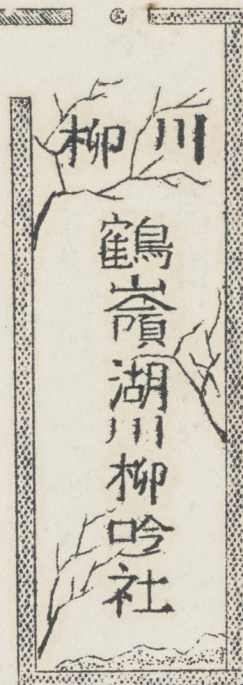 川柳
鶴嶺湖川柳吟社